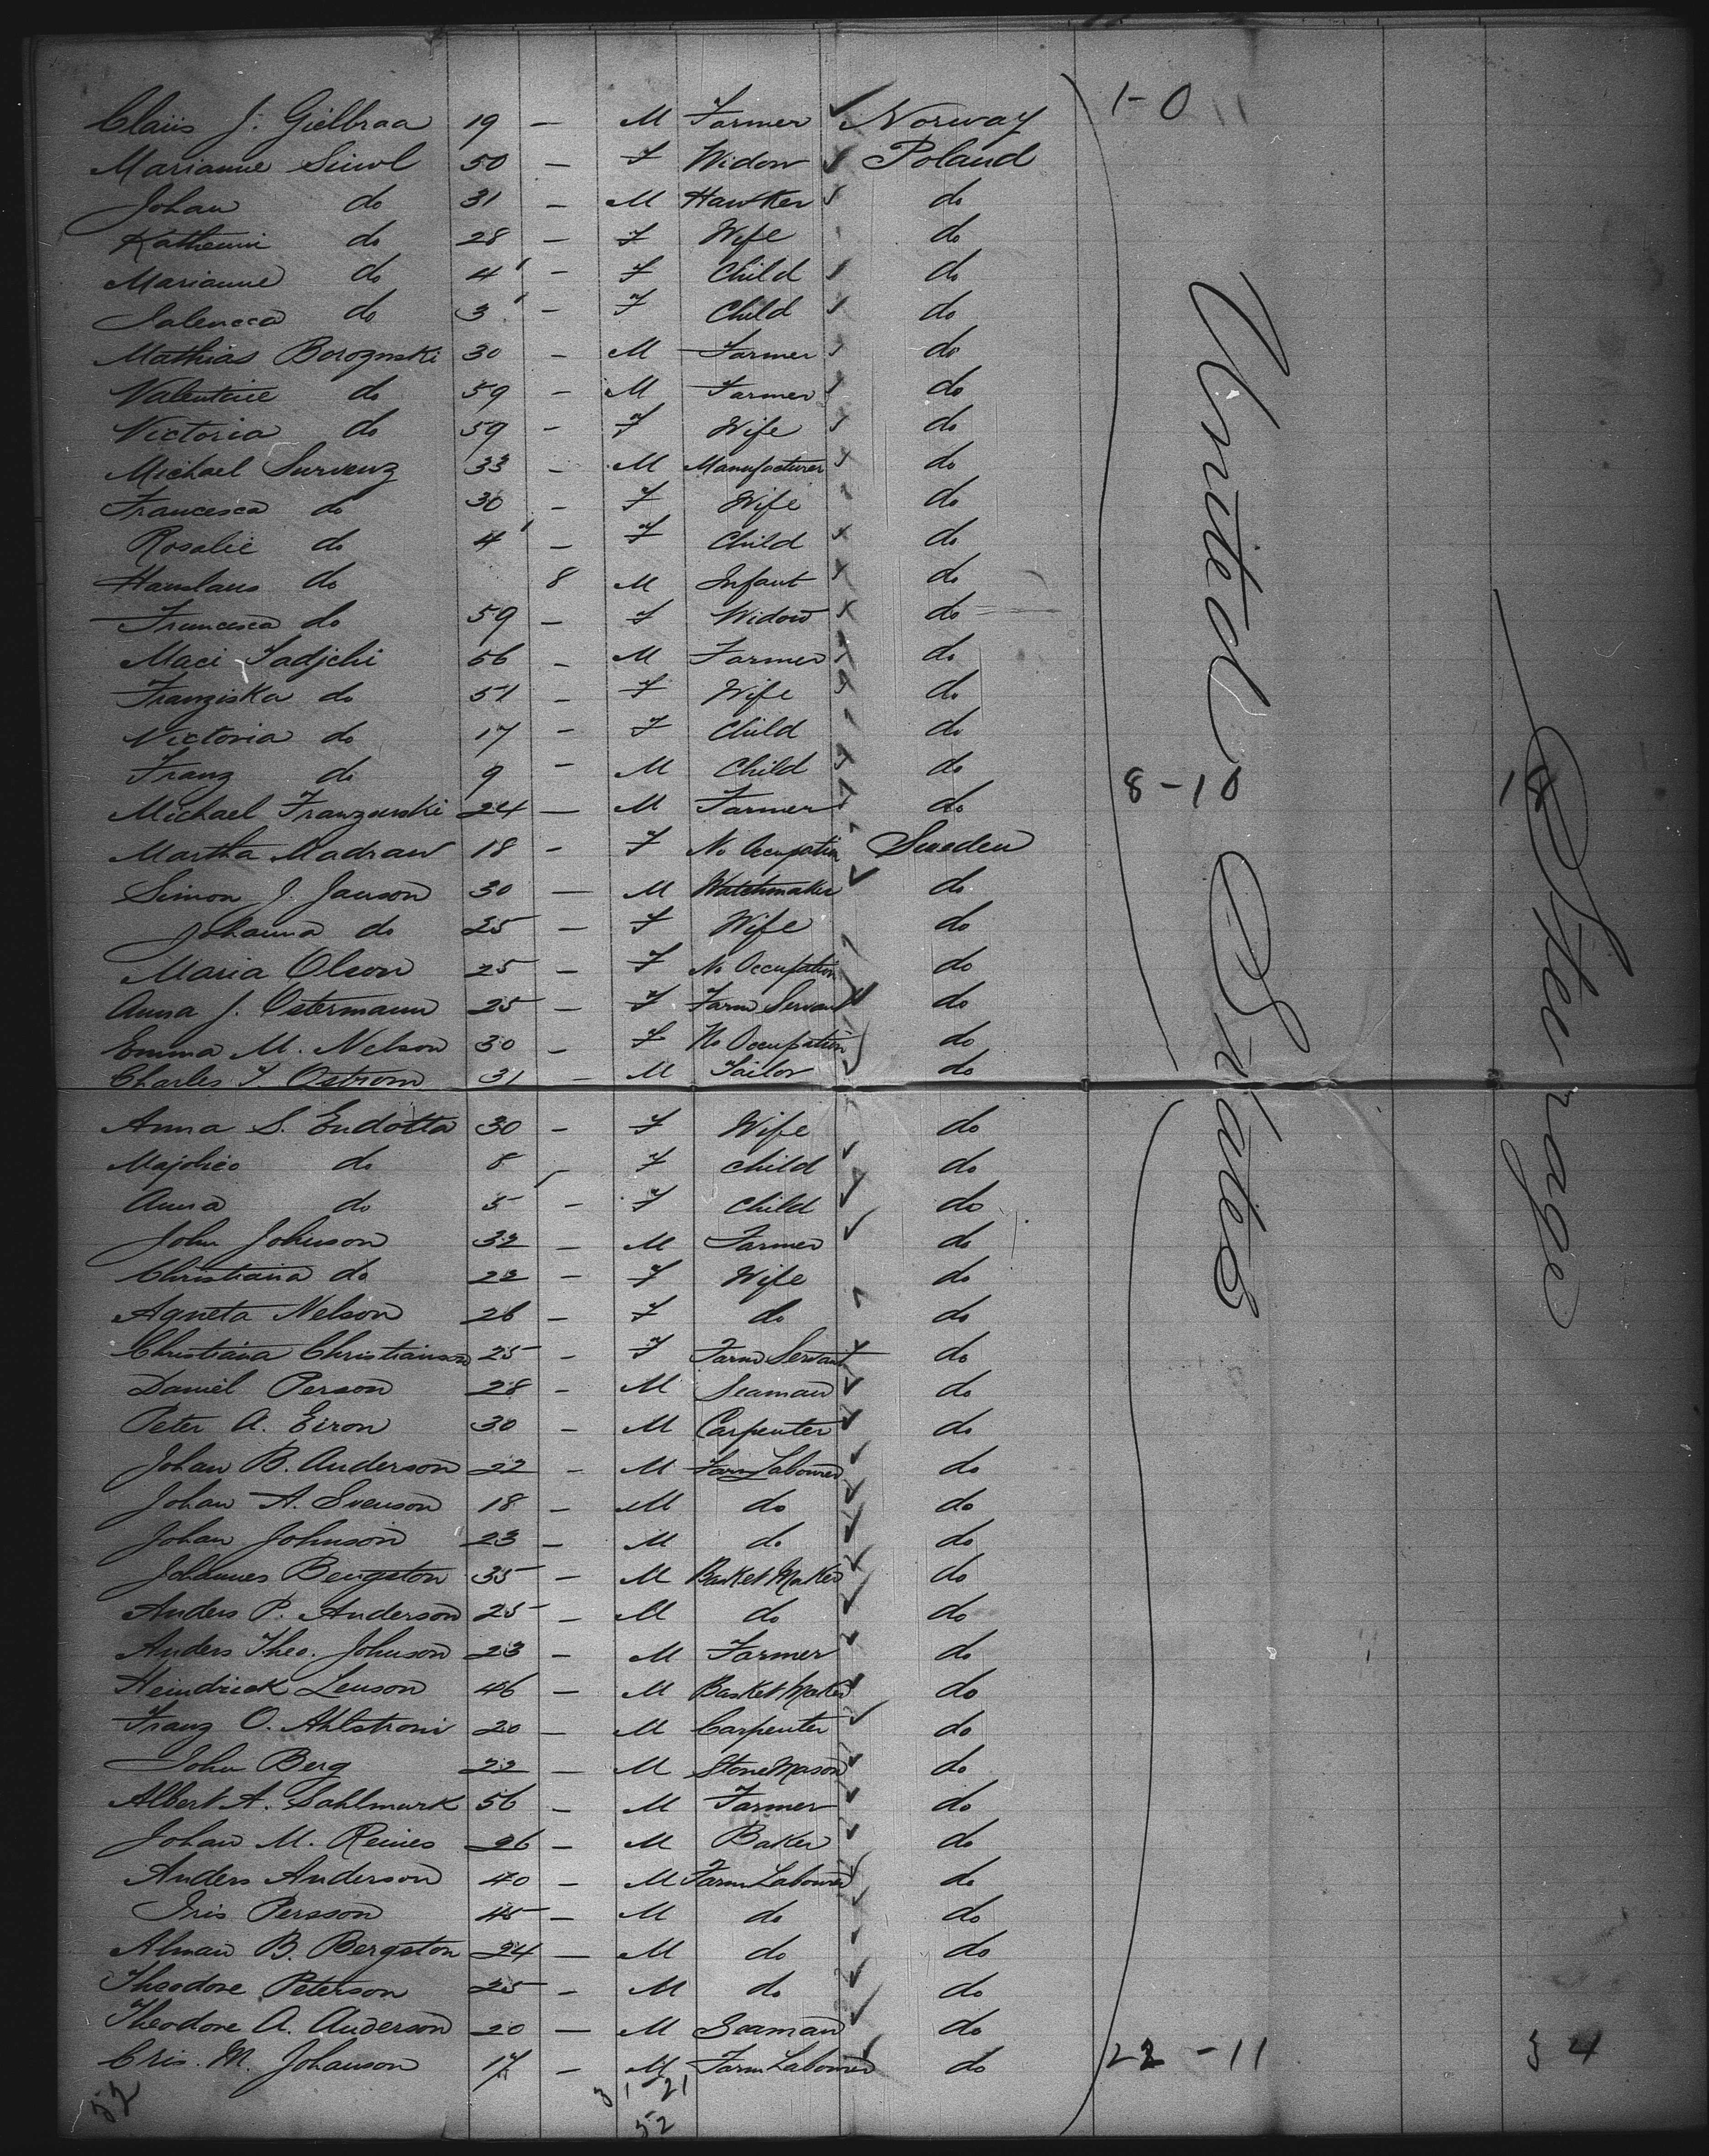 Claiis J. Gielbraa 19 — M Farmer Norway 1-0
Marianne Siwol 50 — F Widow Poland
Johan do 31 — M Hawker do
Katherini do 28 — F Wife do
Marianne do 4 — F Child do
Salencca do 3 — F Child do
Mathias Borognski 30 — M Farmer do
Valentine do 59 — M Farmer do
Victoria do 59 — F Wife do
Michael Survenz 33 — M Manufacturer do
Francesca do 30 — F Wife do
Rosalie do 4 — F Child do
Hanslaus do 8 M Infant do
Francesca do 59 — F Widow do
Maci Tadjchi 56 — M Farmer do
Franziska do 51 — F Wife do
Victoria do 17 — F Child do
Franz do 9 — M Child do 8-10 18
Michael Franzunski 24 — M Farmer do
Martha Madraw 18 — F No Occupation Sweden
Simon J. Janson 30 — M Watchmaker do
Johanna do 25 — F Wife do
Maria Olson 25 — F No Occupation do
Anna J. Ostermann 25 — F Farm Servant do
Emma M. Nelson 30 — F No Occupation do
Charles T Ostrom 31 — M Tailor do
Anna S. Endotta 30 — F Wife do
Majolico do 8 — F Child do
Anna do 5 — F Child do
John Johnson 32 — M Farmer do
Christiana do 22 — F Wife do
Agneta Nelson 26 — F do do
Christiana Christianson 25 — F Farm Servant do
Daniel Person 28 — M Seaman do
Peter A. Eiron 30 — M Carpenter do
Johan B. Anderson 22 — M Farm Labourer do
Johan A. Svenson 18 — M do do
Johan Johnson 23 — M do do
Johannes Bengston 35 — M Basket Maker do
Anders P. Anderson 25 — M do do
Anders Theo. Johnson 23 — M Farmer do
Heindrick Lenson 46 — M Basket Maker do
Franz O. Ahlstroni 20 — M Carpenter do
John Berg 22 — M Stone Mason do
Albert A. Sahlmark 56 — M Farmer do
Johan M. Reines 26 — M Baker do
Anders Anderson 40 — M Farm Labourer do
Iris Persson 45 — M do do
Alman B. Bergston 24 — M do do
Theodore Peterson 25 — M do do
Theodore A. Anderson 20 — M Seaman do
Cris. M. Johanson 17 — M Farm Labourer do 22-11 34
52 31 21
52
United States
Steerage